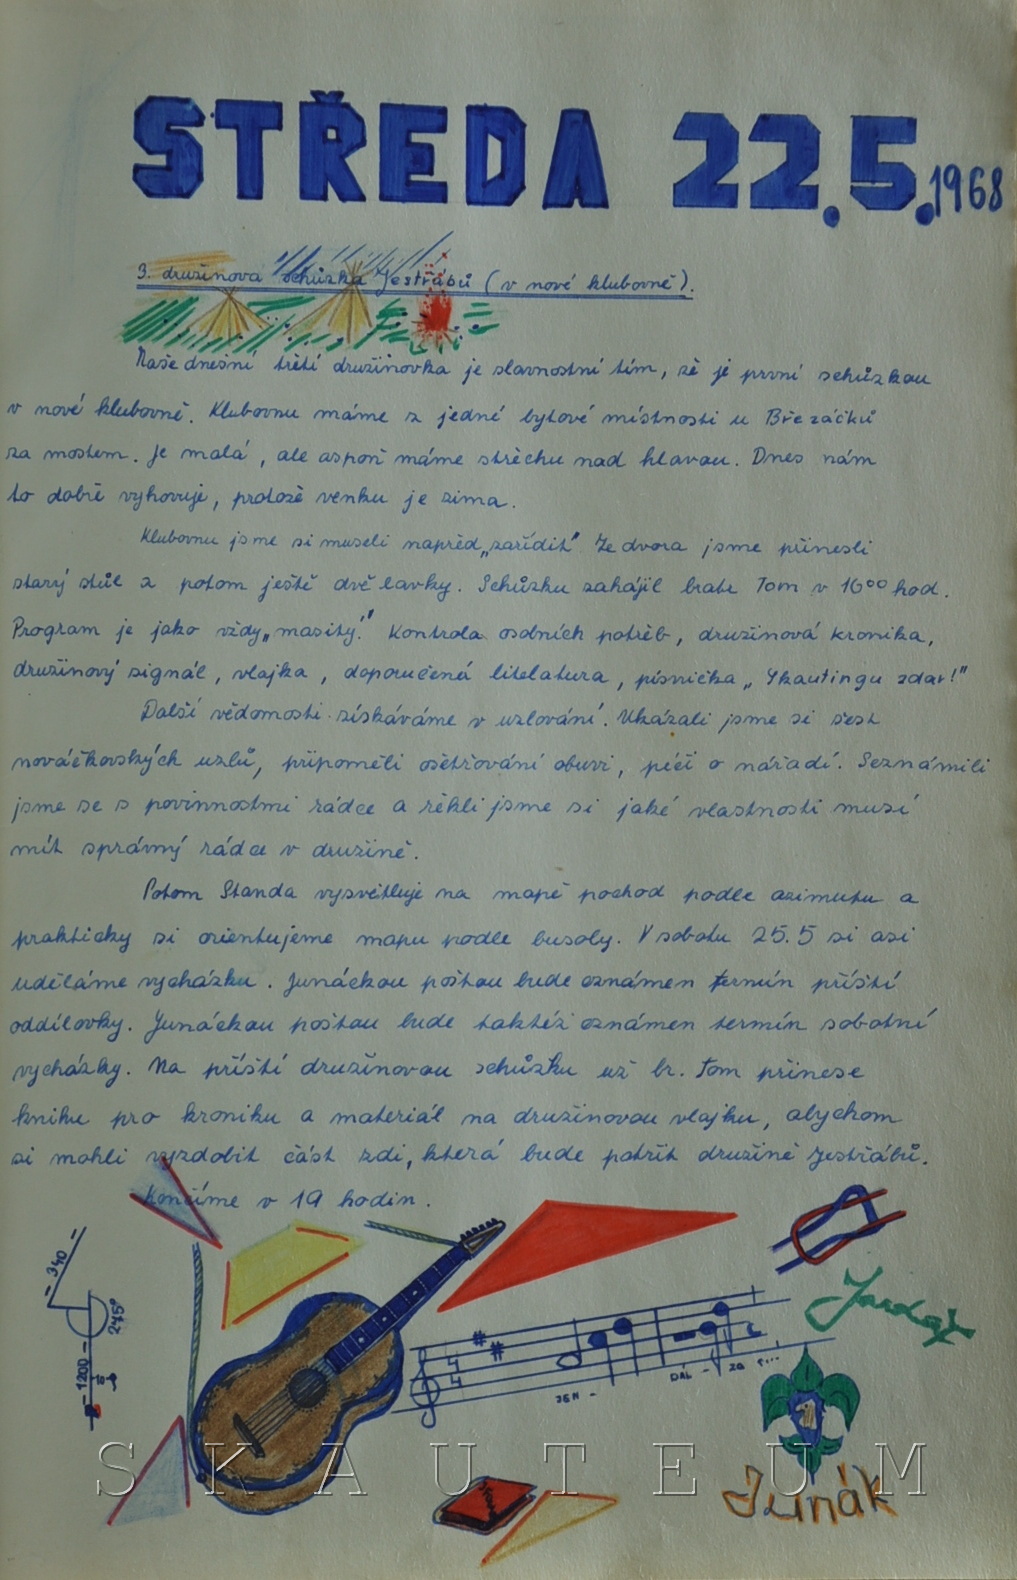 STŘEDA 22.5.1968
3. družinova schůzka Jestřábů (v nové klubovně).
Naše dnešní třetí družinovka je slavnostní tím, že je první schůzkou
v nové klubovně. Klubovnu máme z jedné bytové místnosti u Březáčků
za mostem. Je malá, ale aspoň máme střechu nad hlavou. Dnes nám
to dobře vyhovuje, protože venku je zima.
Klubovnu jsme si museli napřed „zařídit" Ze dvora jsme přinesli
starý stůl a potom ještě dvě lavky. Schůzku zahájil bratr Tom v 16⁰⁰ hod.
Program je jako vždy „masitý." Kontrola osobních potřeb, družinová kronika,
družinový signál, vlajka, doporučená literatura, písnička „Skautingu zdar!"
Další vědomosti získáváme v uzlování. Ukázali jsme si šest
nováčkovských uzlů, připoměli ošetřování obuvi, péči o nářadí. Seznámili
jsme se s povinnostmi rádce a řekli jsme si jaké vlastnosti musí
mít správný rádce v družině.
Potom Standa vysvětluje na mapě pochod podle azimutu a
prakticky si orientujeme mapu podle busoly. V sobotu 25.5 si asi
uděláme vycházku. Junáckou poštou bude oznámen termín příští
oddílovky. Junáckou poštou bude taktéž oznámen termín sobotní
vycházky. Na příští družinovou schůzku už br. Tom přinese
knihu pro kroniku a materiál na družinovou vlajku, abychom
si mohli vyzdobit část zdi, která bude patřit družině Jestřábů.
Končíme v 19 hodin.
340
245°
1200
4
4
JEN -
DÁL - ZA
Junák
SKAUTEUM